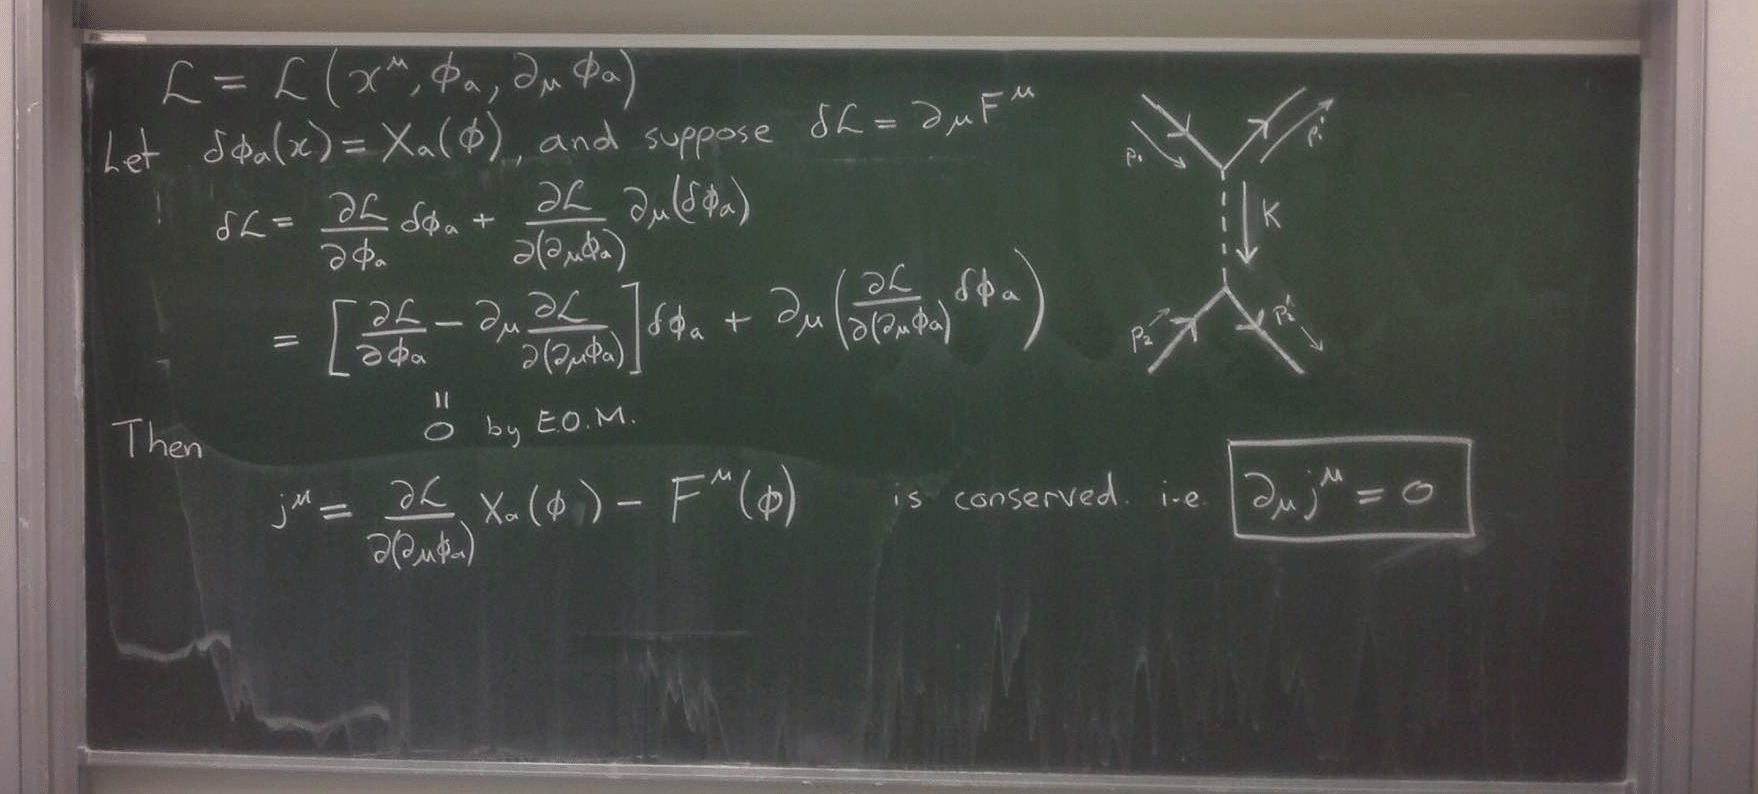 ℒ = ℒ(x^μ, ϕₐ, ∂_μ ϕₐ)
Let δϕₐ(x) = Xₐ(ϕ), and suppose δℒ = ∂_μ F^μ
δℒ = ∂ℒ/∂ϕₐ δϕₐ + ∂ℒ/∂(∂_μϕₐ) ∂_μ(δϕₐ)
= [∂ℒ/∂ϕₐ − ∂_μ ∂ℒ/∂(∂_μϕₐ)] δϕₐ + ∂_μ(∂ℒ/∂(∂_μϕₐ) δϕₐ)
=
0 by E.O.M.
Then
j^μ = ∂ℒ/∂(∂_μϕₐ) Xₐ(ϕ) − F^μ(ϕ) is conserved. i.e ∂_μ j^μ = 0
p₁ p₁'
K
p₂ p₂'